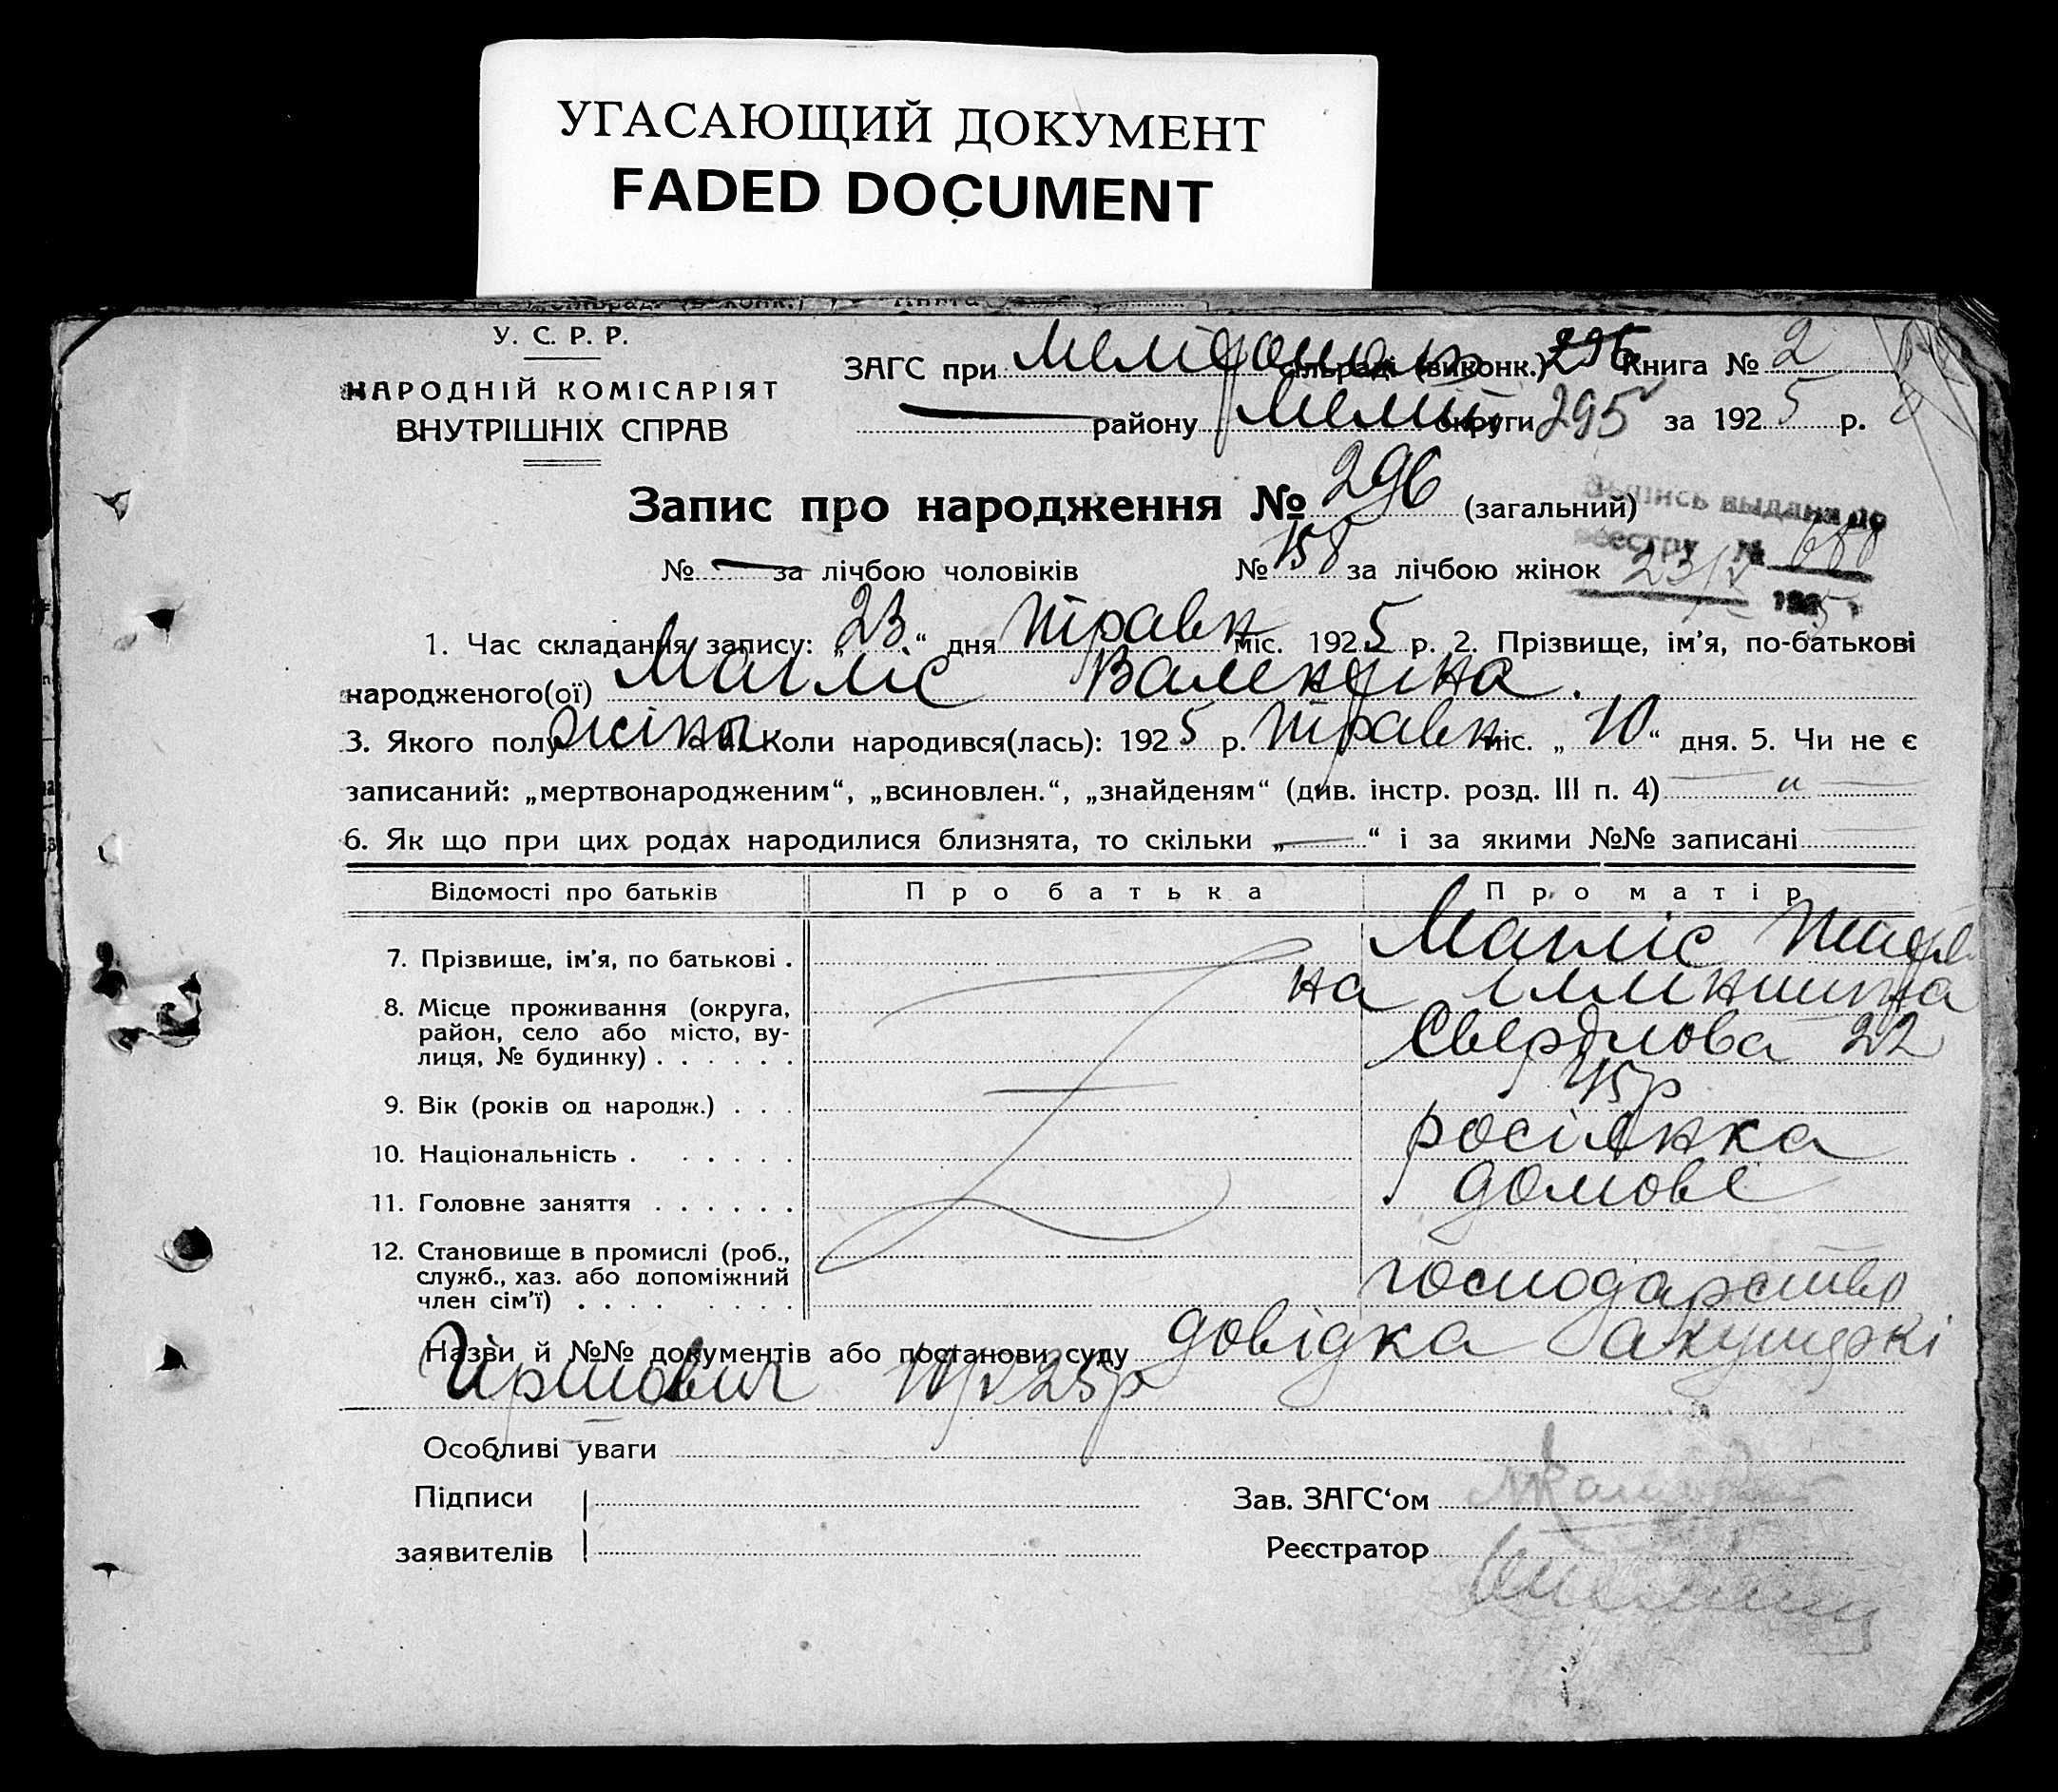 УГАСАЮЩИЙ ДОКУМЕНТ
FADED DOCUMENT
У. С. Р. Р.
НАРОДНІЙ КОМІСАРІЯТ
ВНУТРІШНІХ СПРАВ
ЗАГС при Мелітополь сільраді (виконк.) 296 Книга № 2
району Меліт округи 295 за 1925 р.
Запис про народження № 296 (загальний)
Выпись выдана по
реестру № 688
23/V 1925
№ — за лічбою чоловіків № 158 за лічбою жінок
1. Час складання запису: „23“ дня травн міс. 1925 р. 2. Прізвище, ім'я, по-батькові
народженого(ої) Магліс Валентина.
3. Якого полу жіноч 4. Коли народився(лась): 1925 р. травн міс. „10“ дня. 5. Чи не є
записаний: „мертвонародженим“, „всиновлен.“, „знайденям“ (див. інстр. розд. III п. 4) — „ —
6. Як що при цих родах народилися близнята, то скільки „—“ і за якими №№ записані —
Відомості про батьків Про батька Про матір
7. Прізвище, ім'я, по батькові . Магліс
8. Місце проживання (округа,
район, село або місто, ву-
лиця, № будинку) . . . . . . Свердлова 22
9. Вік (років од народж.) . . . — р
10. Національність . . . . . . росіянка
11. Головне заняття . . . . . . домове
12. Становище в промислі (роб.,
служб., хаз. або допоміжний
член сім'ї) . . . . . . . . господарство
Назви й №№ документів або постанови суду довідка акушерки
Гіршович 10/V 25р
Особливі уваги
Підписи
заявителів
Зав. ЗАГС'ом
Реєстратор